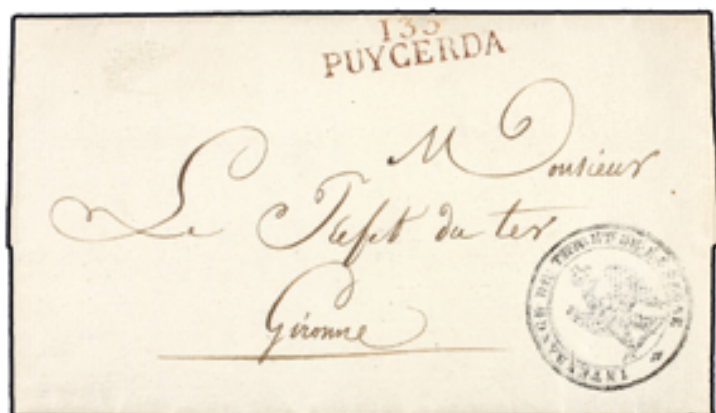 133
PUYCERDA
Monsieur
Le Préfet du ter
Gironne
INTENDANCE DU
DE LA SEGRE